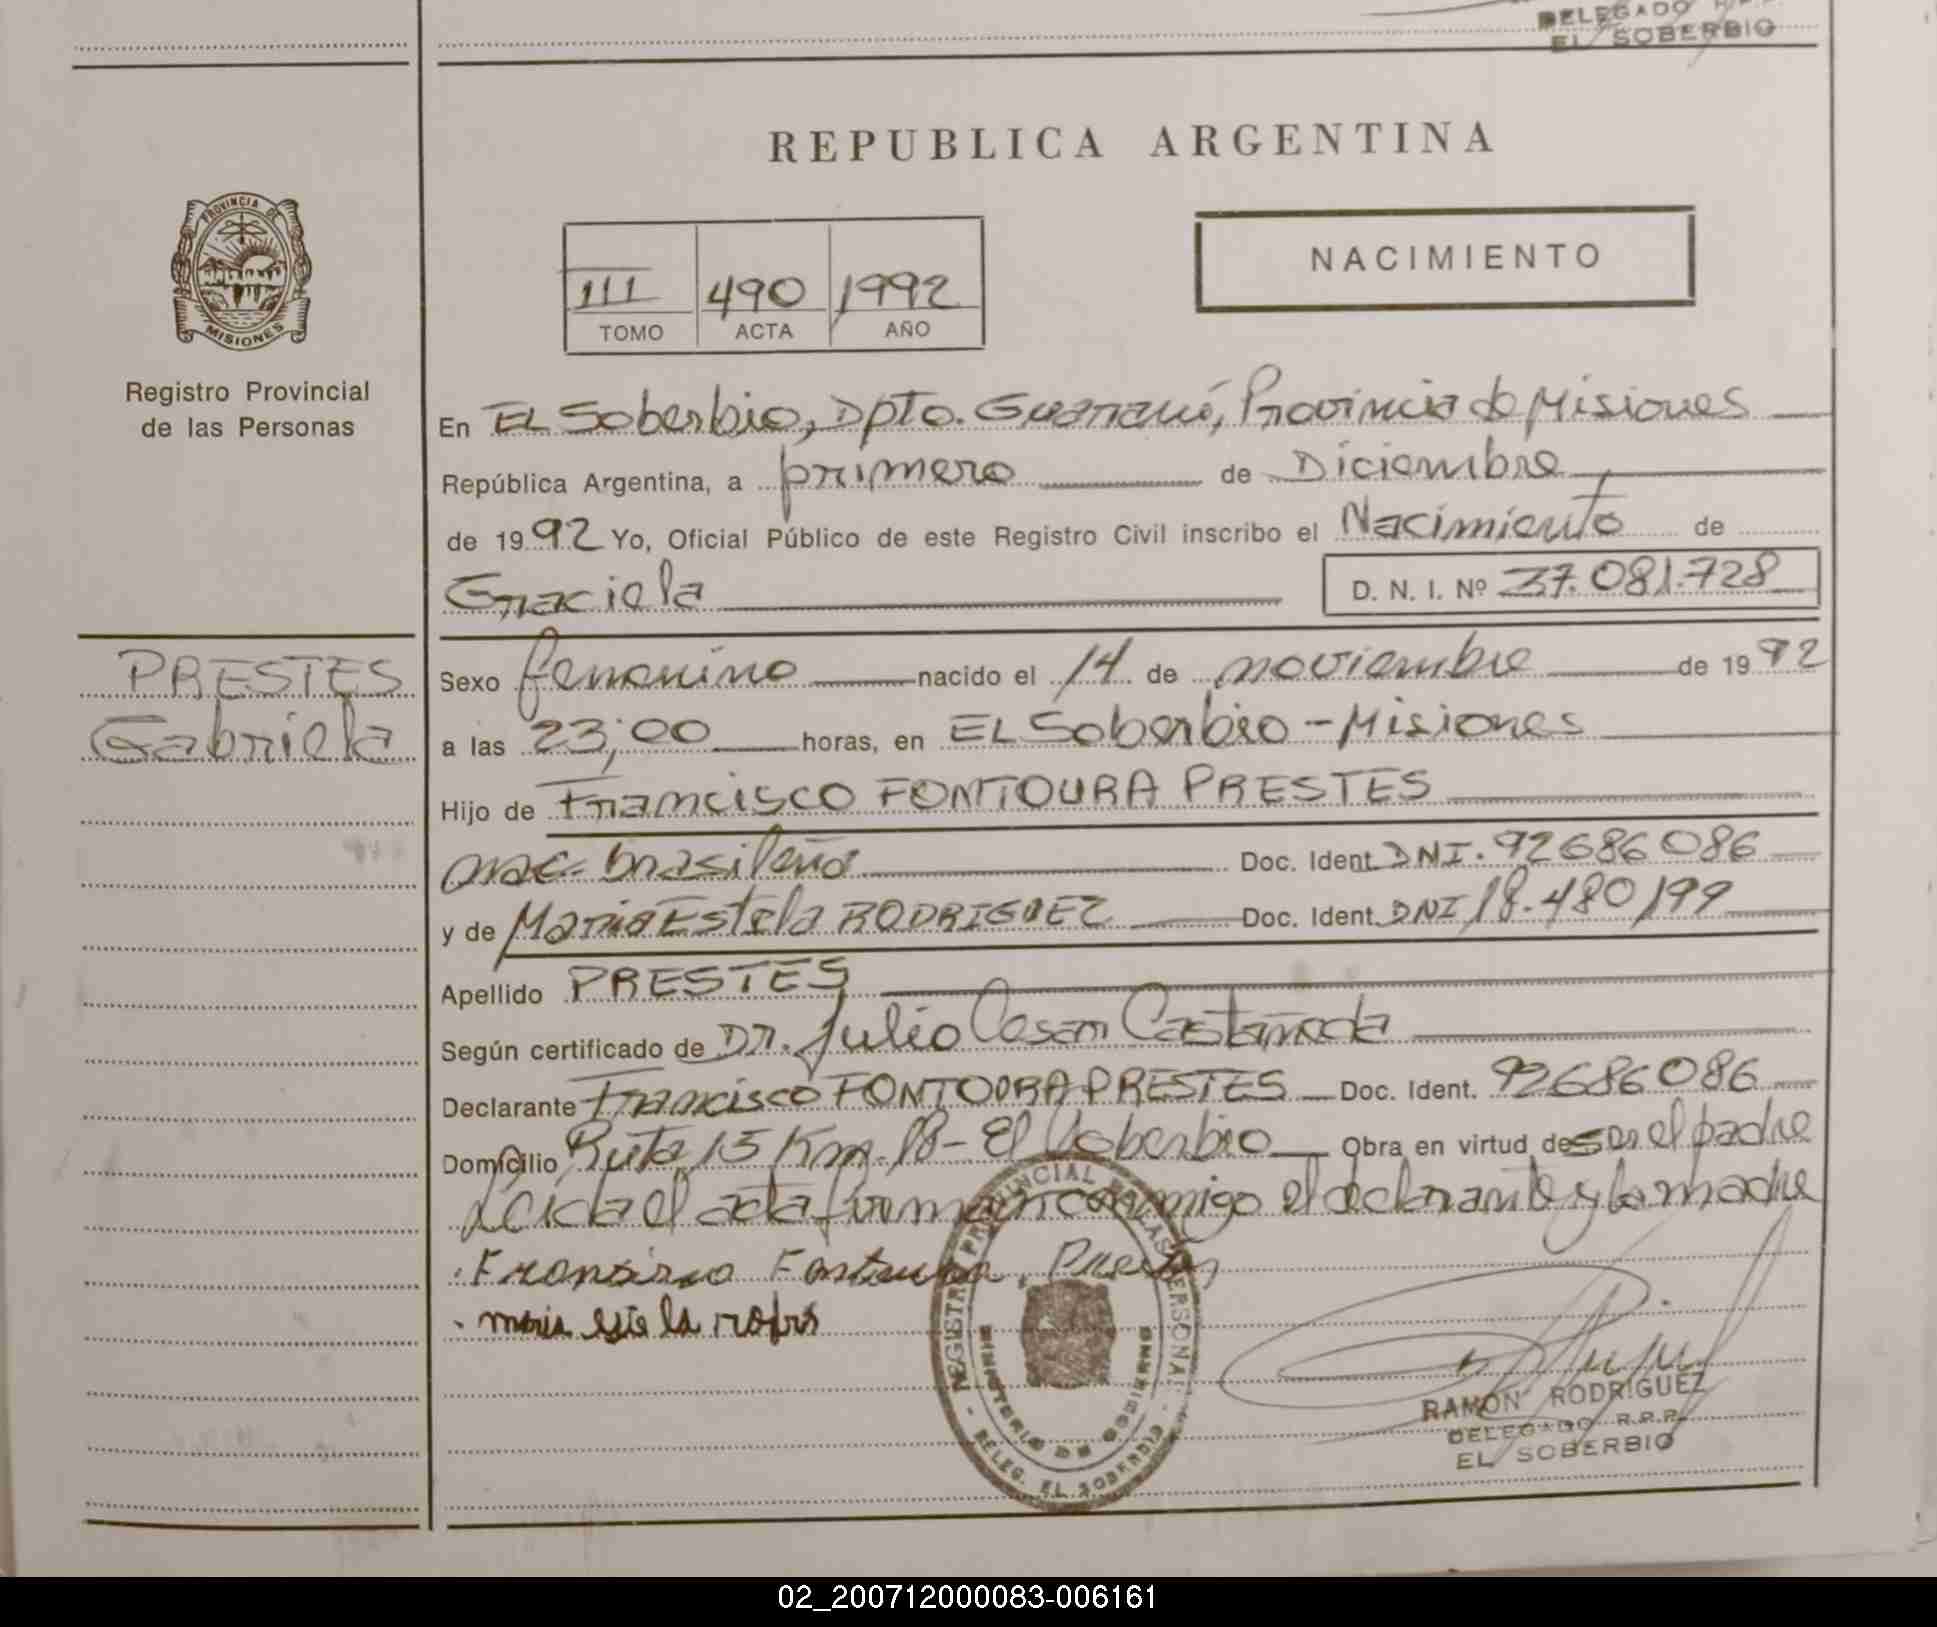 DELEGADO R.P.P.
EL SOBERBIO
REPUBLICA ARGENTINA
PROVINCIA DE
MISIONES
Registro Provincial
de las Personas
III 490 1992
TOMO ACTA AÑO
NACIMIENTO
En EL Soberbio, Dpto. Guaraní, Provincia de Misiones
República Argentina, a primero de Diciembre
de 1992 Yo, Oficial Público de este Registro Civil inscribo el Nacimiento de
Graciela D. N. I. Nº 37.081.728
PRESTES
Gabriela
Sexo femenino nacido el 14 de noviembre de 1992
a las 23;00 horas, en EL Soberbio - Misiones
Hijo de Francisco FONTOURA PRESTES
nac. brasileña Doc. Ident. DNI. 92686086
y de Maria Estela RODRIGUEZ Doc. Ident. DNI 18.480199
Apellido PRESTES
Según certificado de Dr. Julio Cesar Castañeda
Declarante Francisco FONTOURA PRESTES Doc. Ident. 92686086
Domicilio Ruta 15 Km. 18 - El Soberbio Obra en virtud de ser el padre
Leida el acta firman conmigo el declarante y la madre
Francisco Fontoura Prestes
maria este la
REGISTRO PROVINCIAL DE LAS PERSONAS
MINISTERIO DE GOBIERNO
- DELEG. EL SOBERBIO -
RAMON RODRIGUEZ
DELEGADO R.P.P.
EL SOBERBIO
02_200712000083-006161